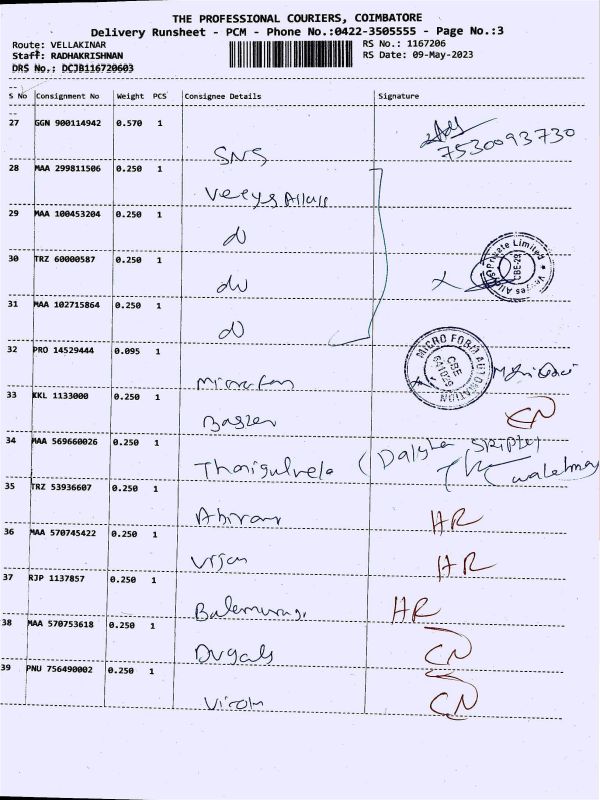 THE PROFESSIONAL COURIERS, COIMBATORE
Delivery Runsheet - PCM - Phone No.:0422-3505555 - Page No.:3
Route: VELLAKINAR RS No.: 1167206
Staff: RADHAKRISHNAN RS Date: 09-May-2023
DRS No.: DCJB116720603
S No Consignment No Weight PCS Consignee Details Signature
27 GGN 900114942 0.570 1
SNS 7530093730
28 MAA 299811506 0.250 1
29 MAA 100453204 0.250 1
30 TRZ 60000587 0.250 1
Private Limited
CBE-29
31 MAA 102715864 0.250 1
32 PRO 14529444 0.095 1
MICRO FORM AUTOMATION
CBE
641029
33 KKL 1133000 0.250 1
CN
34 MAA 569660026 0.250 1
35 TRZ 53936607 0.250 1
Abiram HR
36 MAA 570745422 0.250 1
HR
37 RJP 1137857 0.250 1
HR
38 MAA 570753618 0.250 1
CN
39 PNU 756490002 0.250 1
CN